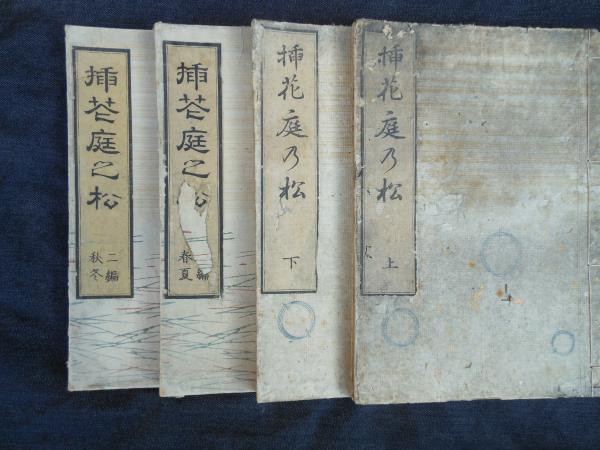 挿花庭乃松
上
挿花庭乃松
下
挿花庭之松
編
春夏
挿花庭之松
二編
秋冬